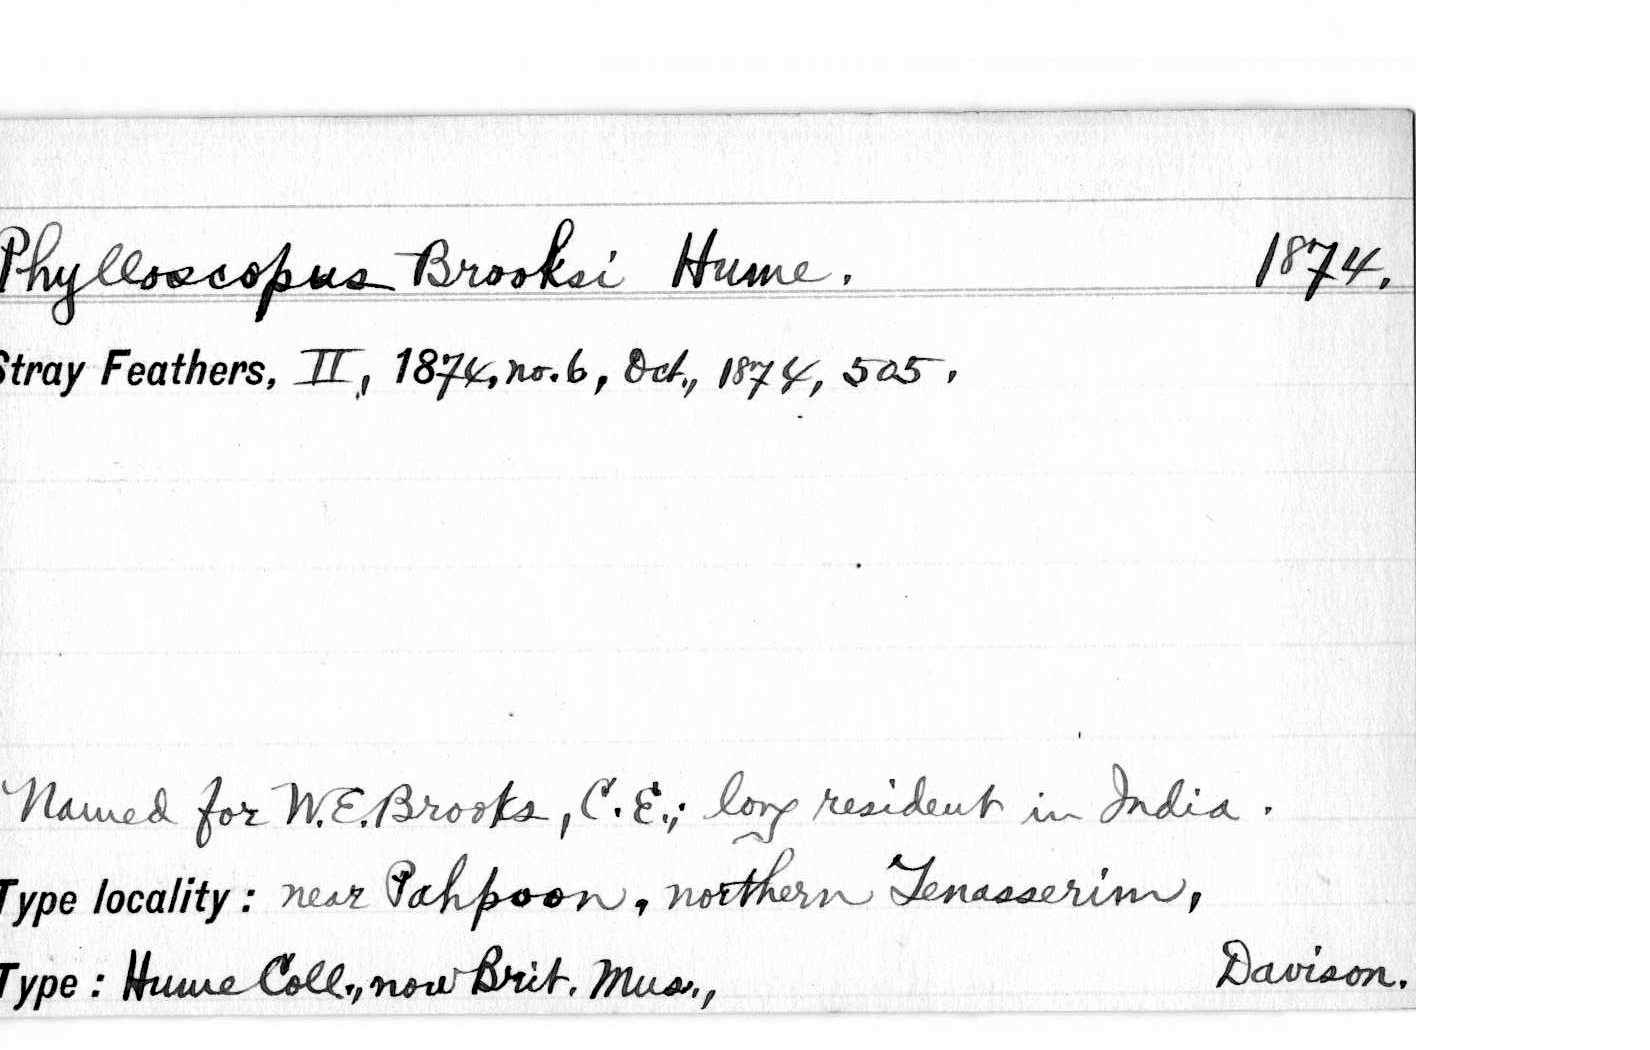 Phylloscopus Brooksi Hume. 1874.
Stray Feathers, II, 1874, no. 6, Oct., 1874, 505.
Named for W. E. Brooks, C. E.; long resident in India.
Type locality: near Pahpoon, northern Tenasserim,
Type: Hume Coll., now Brit. Mus., Davison.